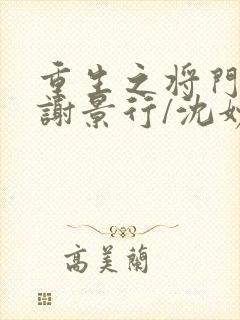 重生之将門
謝景行/沈妙
高美蘭